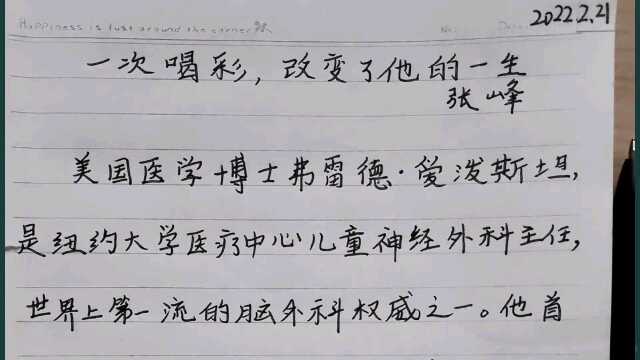 Happiness is just around the corner
No:
2022.2.21
一次喝彩，改变了他的一生
张峰
美国医学博士弗雷德·爱泼斯坦，
是纽约大学医疗中心儿童神经外科主任，
世界上第一流的脑外科权威之一。他首